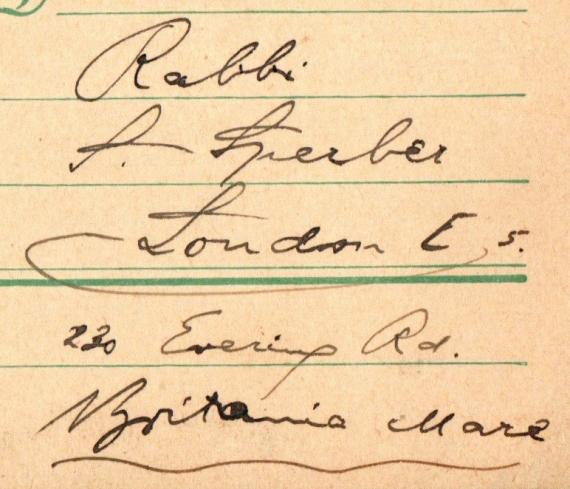 Rabbi
S. Sperber
London E 5.
230 Evering Rd.
Britania Mare